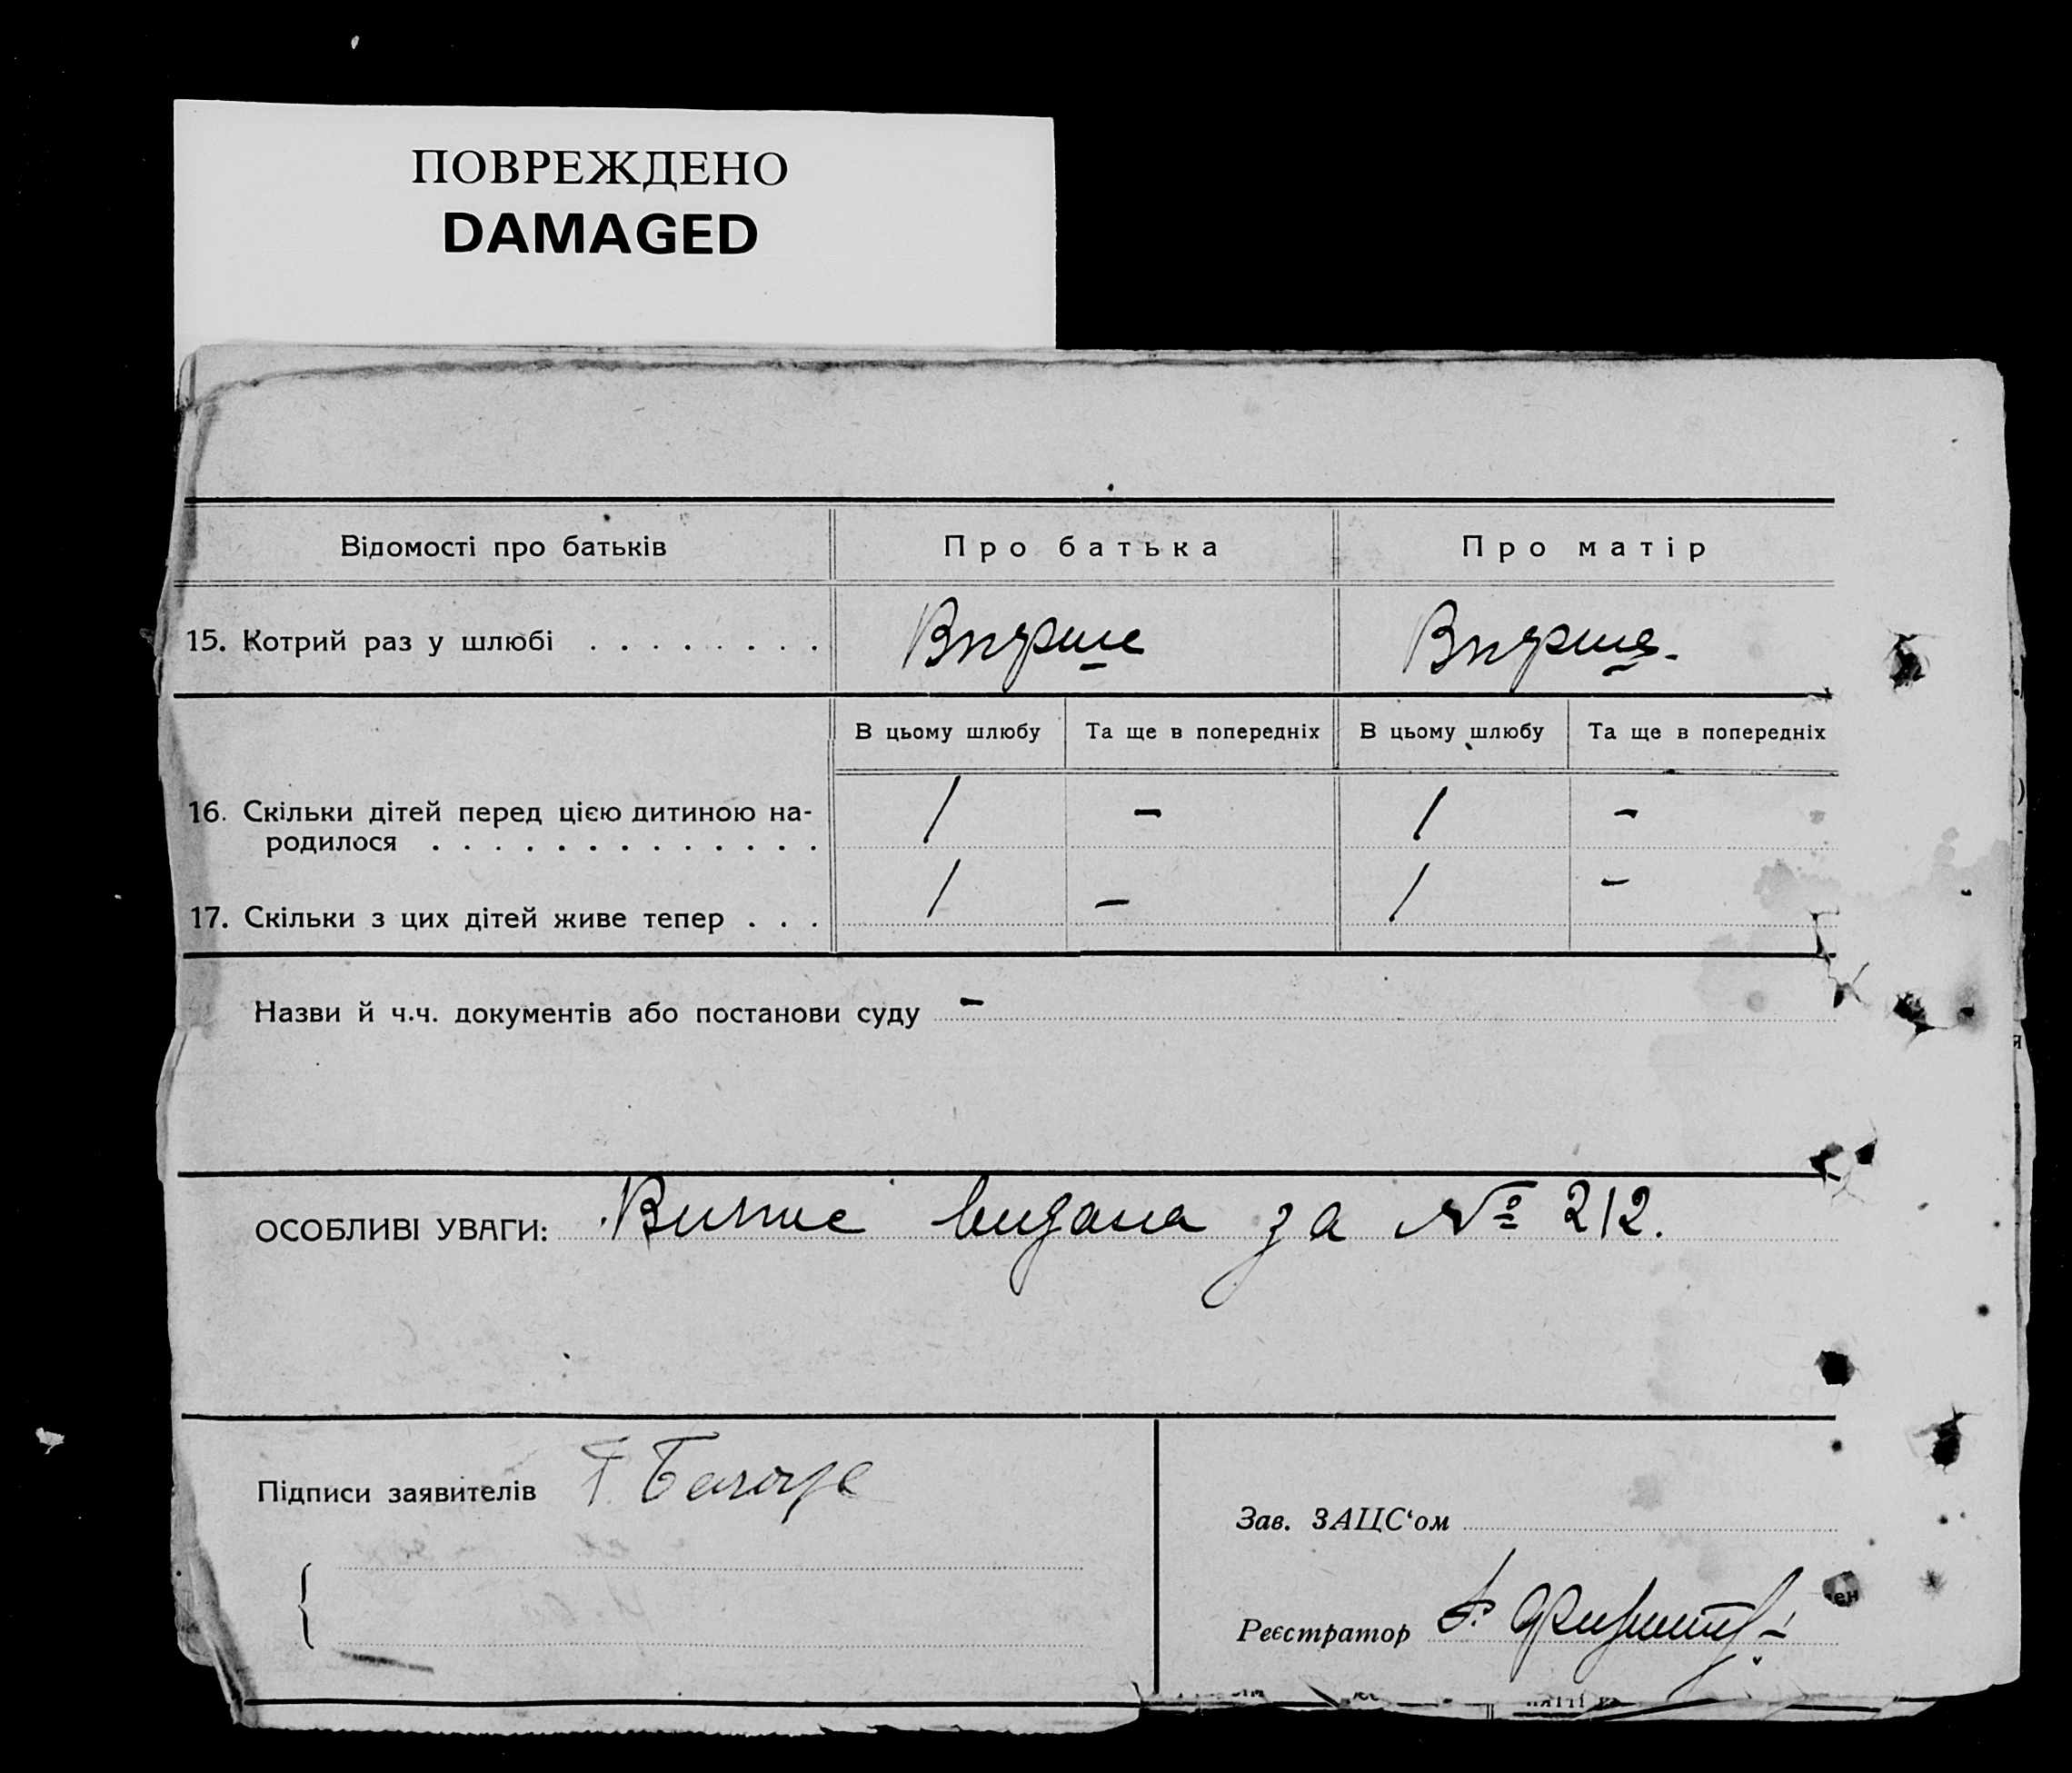 ПОВРЕЖДЕНО
DAMAGED
Відомості про батьків Про батька Про матір
15. Котрий раз у шлюбі . . . . . . . . Вперше Вперше.
В цьому шлюбу Та ще в попередніх В цьому шлюбу Та ще в попередніх
16. Скільки дітей перед цією дитиною на-
родилося . . . . . . . . . . . . . 1 - 1 -
17. Скільки з цих дітей живе тепер . . . 1 - 1 -
Назви й ч.ч. документів або постанови суду -
ОСОБЛИВІ УВАГИ: Випис видана за № 212.
Підписи заявителів
Зав. ЗАЦС‘ом
Реєстратор